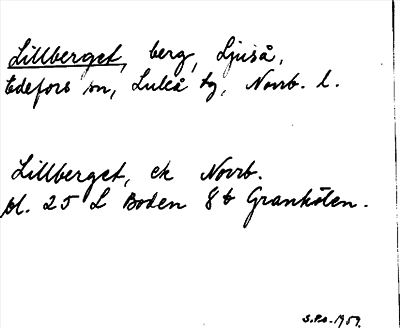 Lillberget, berg, Ljuså,
Edefors sn, Luleå tg, Norrb. l.
Lillberget, ek Norrb.
bl. 25 L Boden 8b Granhölen.
S.P.s. 1959.